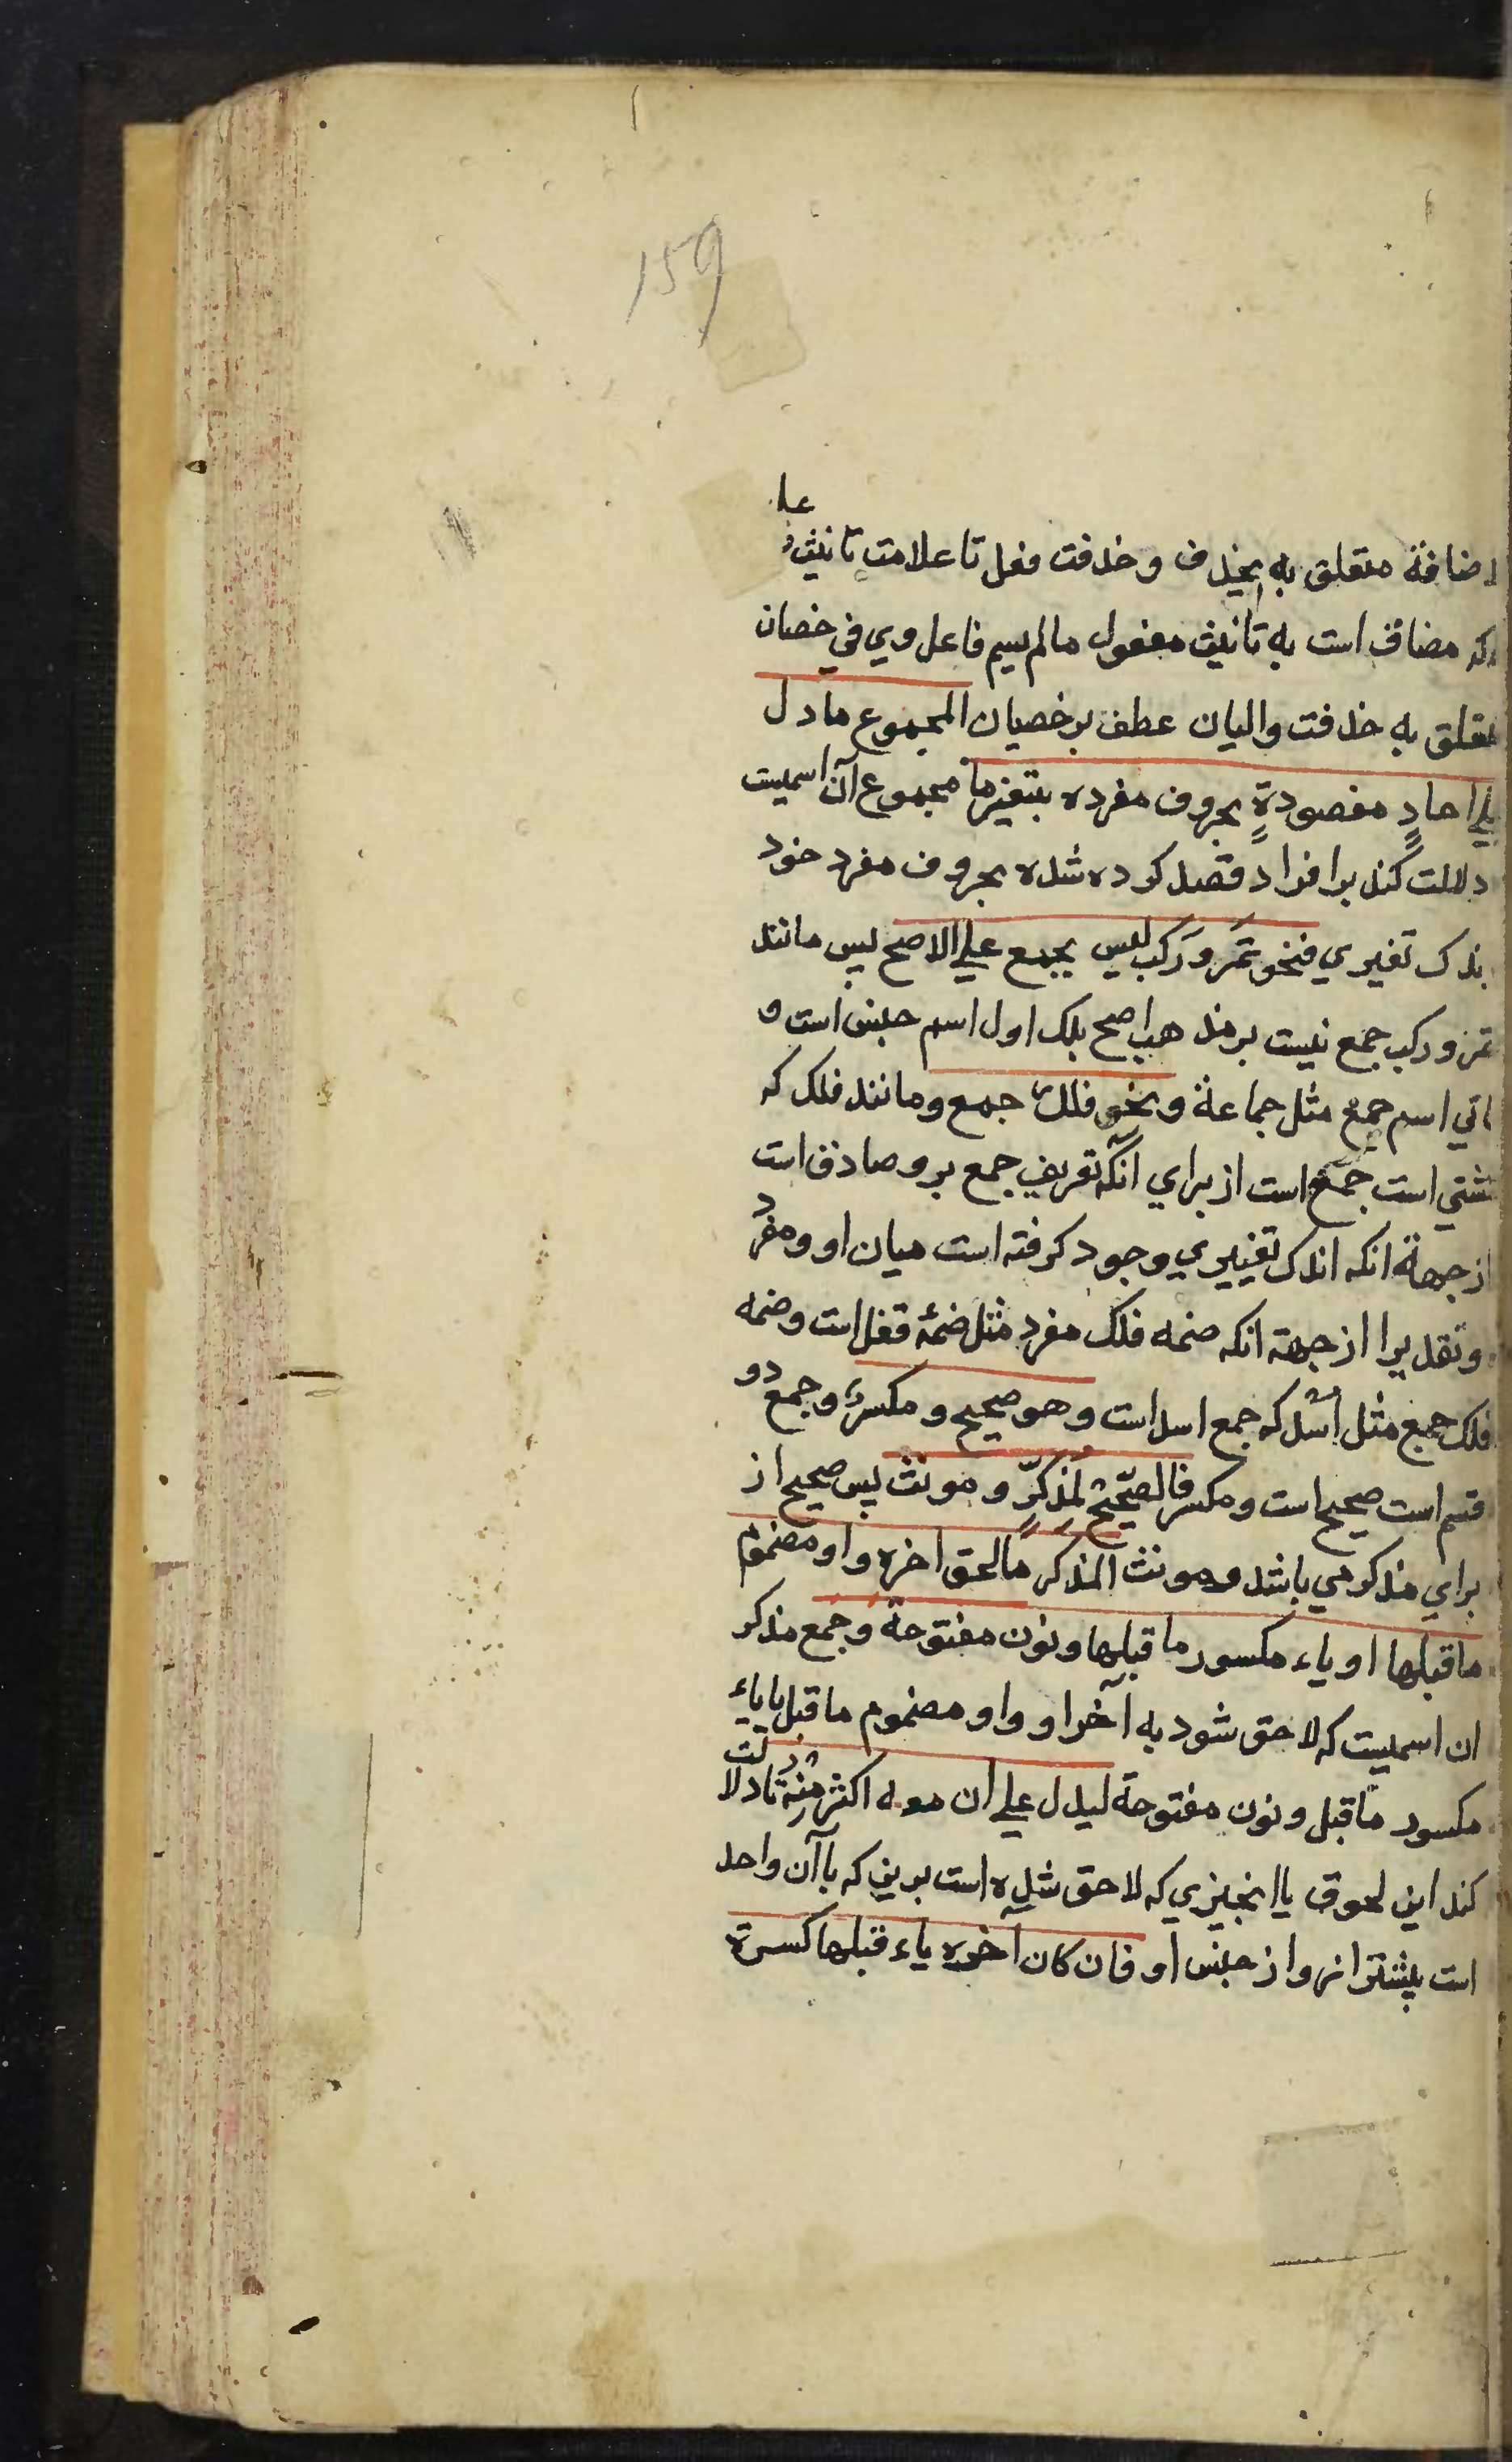 159
علا
لاضافة متعلق به بحذف و حذفت فعل تا علامت تانیث
که مضاف است به تانیث مفعول مالم یسم فاعل وي في خصیان
متعلق به حذفت والیان عطف بر خصیان المجموع ما دل
علي احادٍ مقصودةٍ بحروف مفرده بتغیرما مجموع آن اسمیت
دلالت کند بر افراد قصد کرده شده بحروف مفرد خود
بندک تغیري فنحو تَمَر و رَکَب لیس بجمع علي الاصح پس مانند
تمر و رکب جمع نیست بر مذهب اصح بلک اول اسم جنس است و
ثاني اسم جمع مثل جماعة و نحو فلک جمع و مانند فلک که
کشتي است جمع است از براي آنکه تعریف جمع برو صادق است
از جهة انکه اندک تغییري وجود کرفته است میان او و مفرد
و تقدیرا از جهة انکه ضمه فلک مفرد مثل ضمۀ قفل است و ضمه
فلک جمع مثل اُسُد که جمع اسد است و هو صحیح و مکسر و جمع دو
قسم است صحیح است و مکسر فالصّحیح لمُذکّرٍ و مونث پس صحیح از
براي مذکر مي باشد و مونث المذکر ما لحق اخره واو مضموم
ما قبلها او یاء مکسور ما قبلها و نون مفتوحة و جمع مذکر
ان اسمیست که لاحق شود به آخر او واو مضموم ما قبل یا یاء
مکسور ما قبل و نون مفتوحة لیدل علي ان معه اکثر منه تا دلالت
کند این لحوق یا انچیزي که لاحق شده است برین که با آن واحد
است بیشتر از و از جنس او فان کان آخره یاء قبلها کسرة